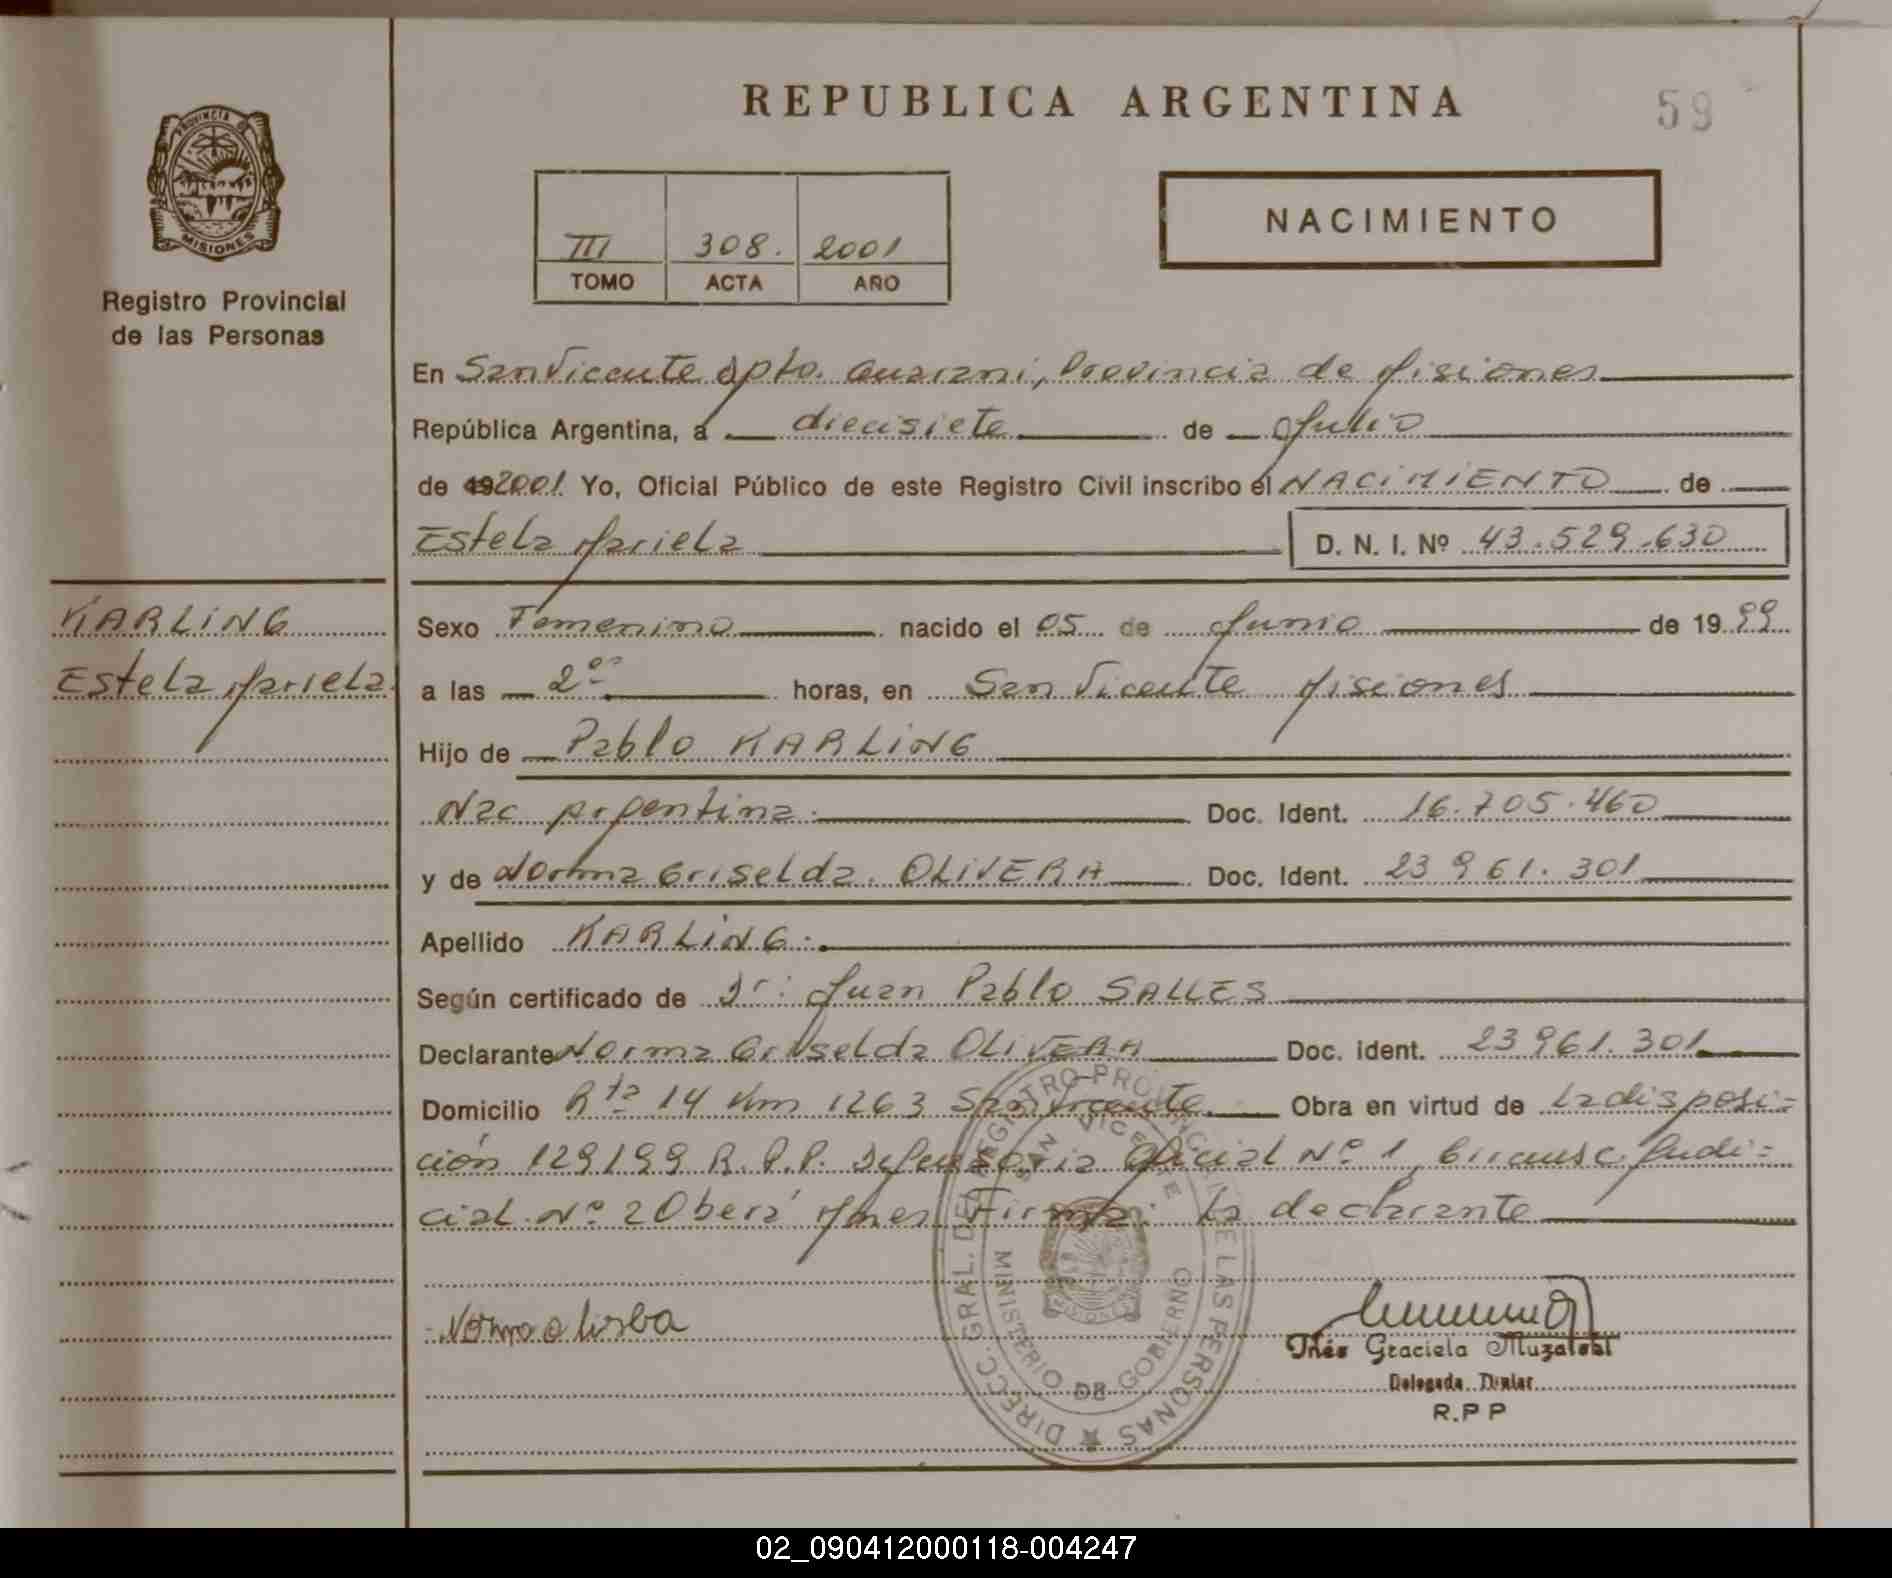 REPUBLICA ARGENTINA
59
PROVINCIA DE
MISIONES
Registro Provincial
de las Personas
III 308. 2001
TOMO ACTA AÑO
NACIMIENTO
En San Vicente Dpto. Guarani, Provincia de Misiones
República Argentina, a diecisiete de Julio
de 19 2001 Yo, Oficial Público de este Registro Civil inscribo el NACIMIENTO de
Estela Mariela D. N. I. Nº 43.529.630
KARLING
Estela Mariela
Sexo Femenino nacido el 05 de Junio de 19 99
a las 2 horas, en San Vicente Misiones
Hijo de Pablo KARLING
Nac Argentina. Doc. Ident. 16.705.460
y de Norma Griselda. OLIVERA Doc. Ident. 23 961. 301
Apellido KARLING.
Según certificado de Dr: Juan Pablo SALLES
Declarante Norma Griselda OLIVERA Doc. ident. 23 961. 301
Domicilio Rta 14 Km 1263 San Vicente. Obra en virtud de La disposi=
ción 129/99 R.P.P. Defensoria Oficial Nº 1, Circunsc. Judi=
cial Nº 2 Oberá Mnes. Firma: La declarante
DIRECC. GRAL. DEL REGISTRO PROVINCIAL DE LAS PERSONAS
SAN VICENTE
MINISTERIO DE GOBIERNO
MISIONES
Norma
Inés Graciela
Delegada Titular
R.P P
02_090412000118-004247